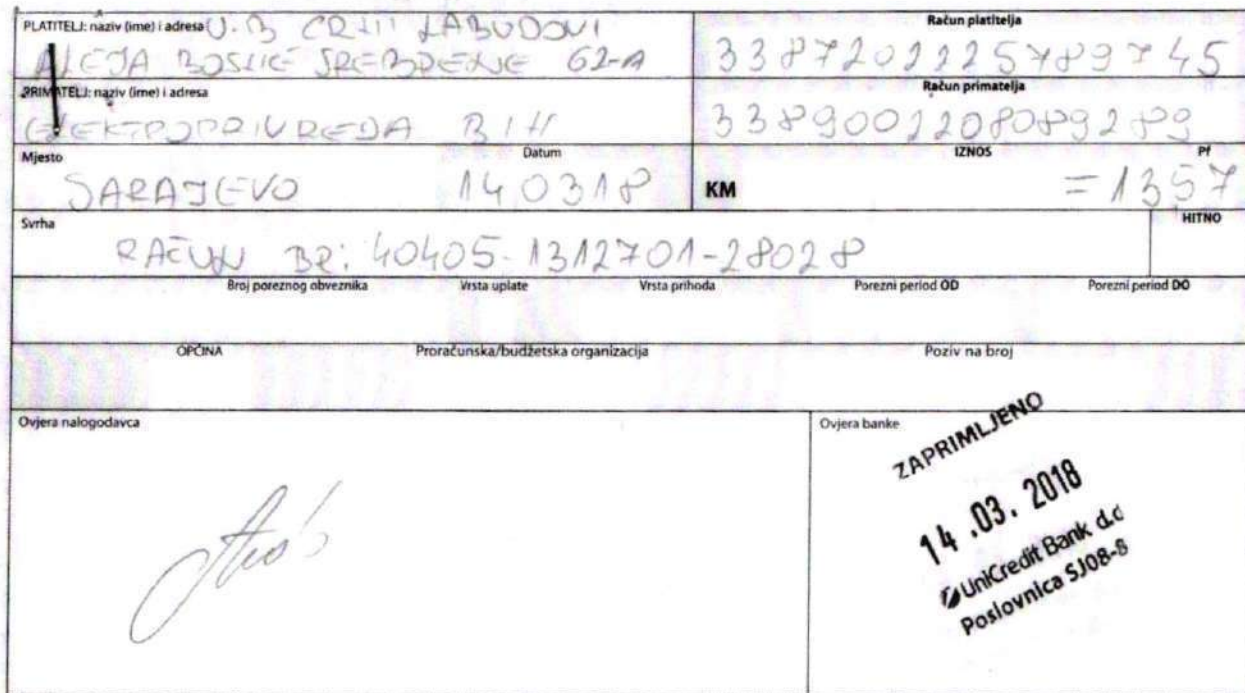 PLATITELJ: naziv (ime) i adresa U.B CRNI LABUDOVI
ALEJA BOSNE SREBRENE 62-A
Račun platitelja
3387202225789745
PRIMATELJ: naziv (ime) i adresa
ELEKTROPRIVREDA BIH
Račun primatelja
3389002208089289
Mjesto
SARAJEVO
Datum
140318
IZNOS
Pf
KM
=1357
Svrha
RAČUN BR: 40405-1312701-28028
HITNO
Broj poreznog obveznika Vrsta uplate Vrsta prihoda Porezni period OD Porezni period DO
OPĆINA Proračunska/budžetska organizacija Poziv na broj
Ovjera nalogodavca
Ovjera banke
ZAPRIMLJENO
14.03.2018
UniCredit Bank d.d
Poslovnica SJ08-8